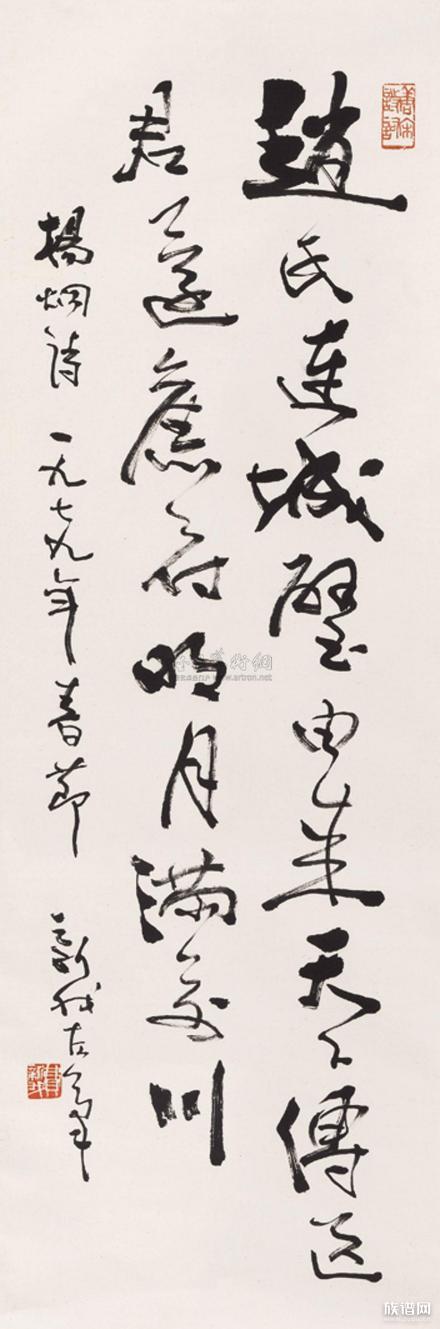 趙氏連城璧由來天下傳送
君還舊府明月滿前川
楊烱詩 一九七九年春節 新我左筆
www.artron.net
族谱网